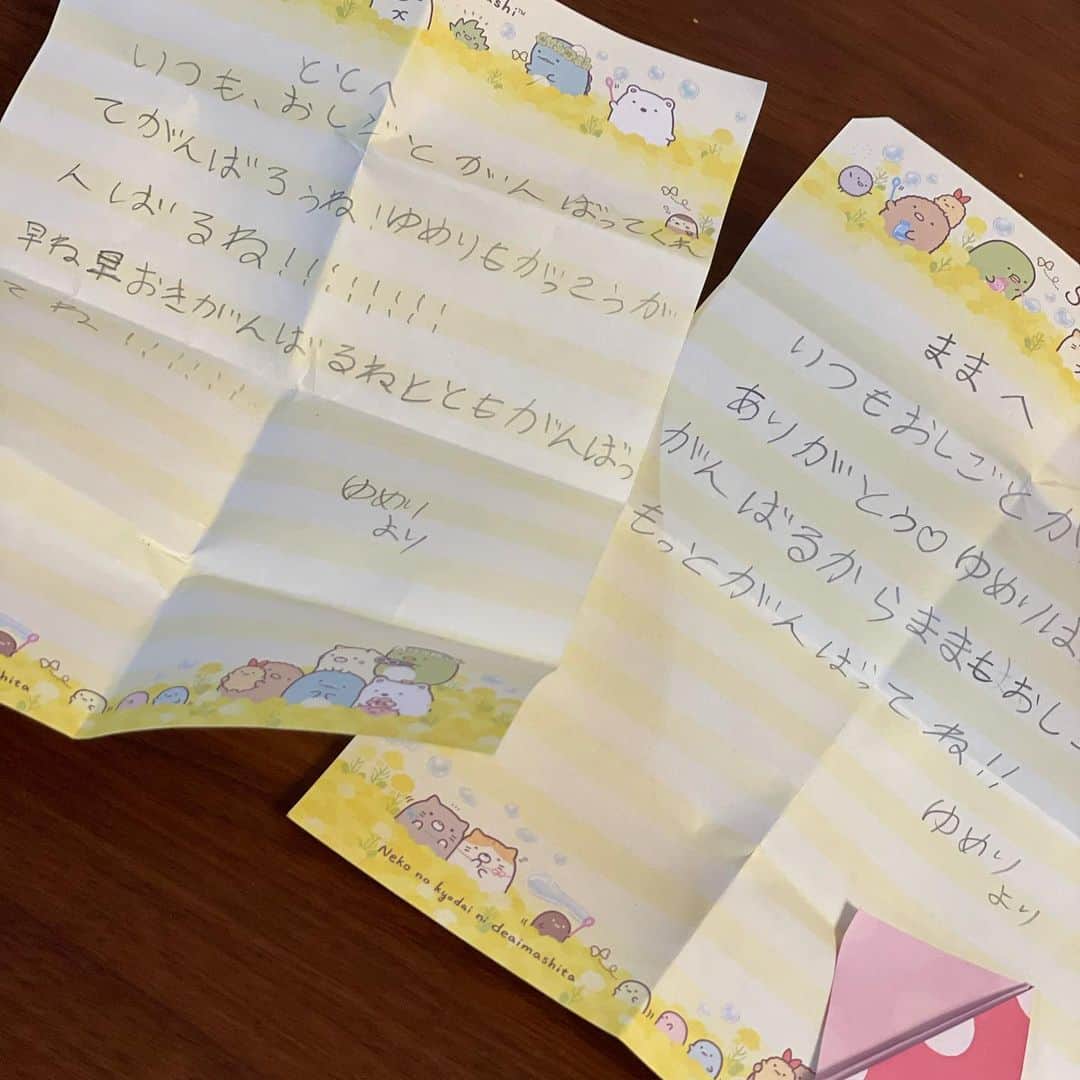 ととへ
いつも、おしごとがんばってくれ
てがんばろうね！ゆめりもがっこうが
んばるね！！！！！！！！！
早ね早おきがんばるねととも がんばっ
てね！！！！！！！
ゆめり
より
ままへ
いつもおしごとが
ありがとう♡ゆめりは
がんばるからままもおしご
もっとがんばってね!!
ゆめり
より
Neko no kyodai ni deaimashita